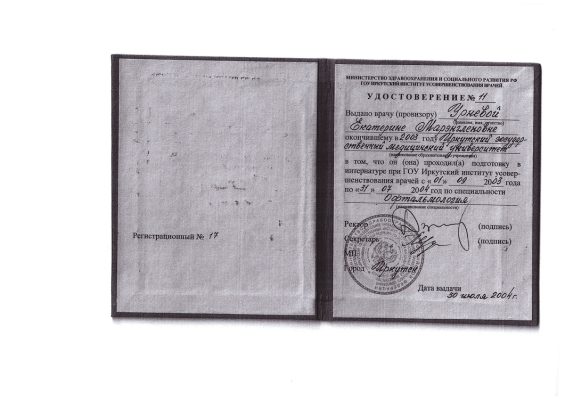 Регистрационный № 17
МИНИСТЕРСТВО ЗДРАВООХРАНЕНИЯ И СОЦИАЛЬНОГО РАЗВИТИЯ РФ
ГОУ ИРКУТСКИЙ ИНСТИТУТ УСОВЕРШЕНСТВОВАНИЯ ВРАЧЕЙ
УДОСТОВЕРЕНИЕ № 11
Выдано врачу (провизору) Урневой
(фамилия, имя, отчество)
Екатерине
окончившему в 2003 году Иркутский государ-
ственный медицинский университет
(наименование образовательного учреждения)
в том, что он (она) проходил(а) подготовку в
интернатуре при ГОУ Иркутский институт усовер-
шенствования врачей с «01» 09 2003 года
по «31» 07 2004 год по специальности
Офтальмология
(наименование специальности)
Ректор (подпись)
Секретарь (подпись)
МП
Город Иркутск
Дата выдачи
30 июля 2004 г.